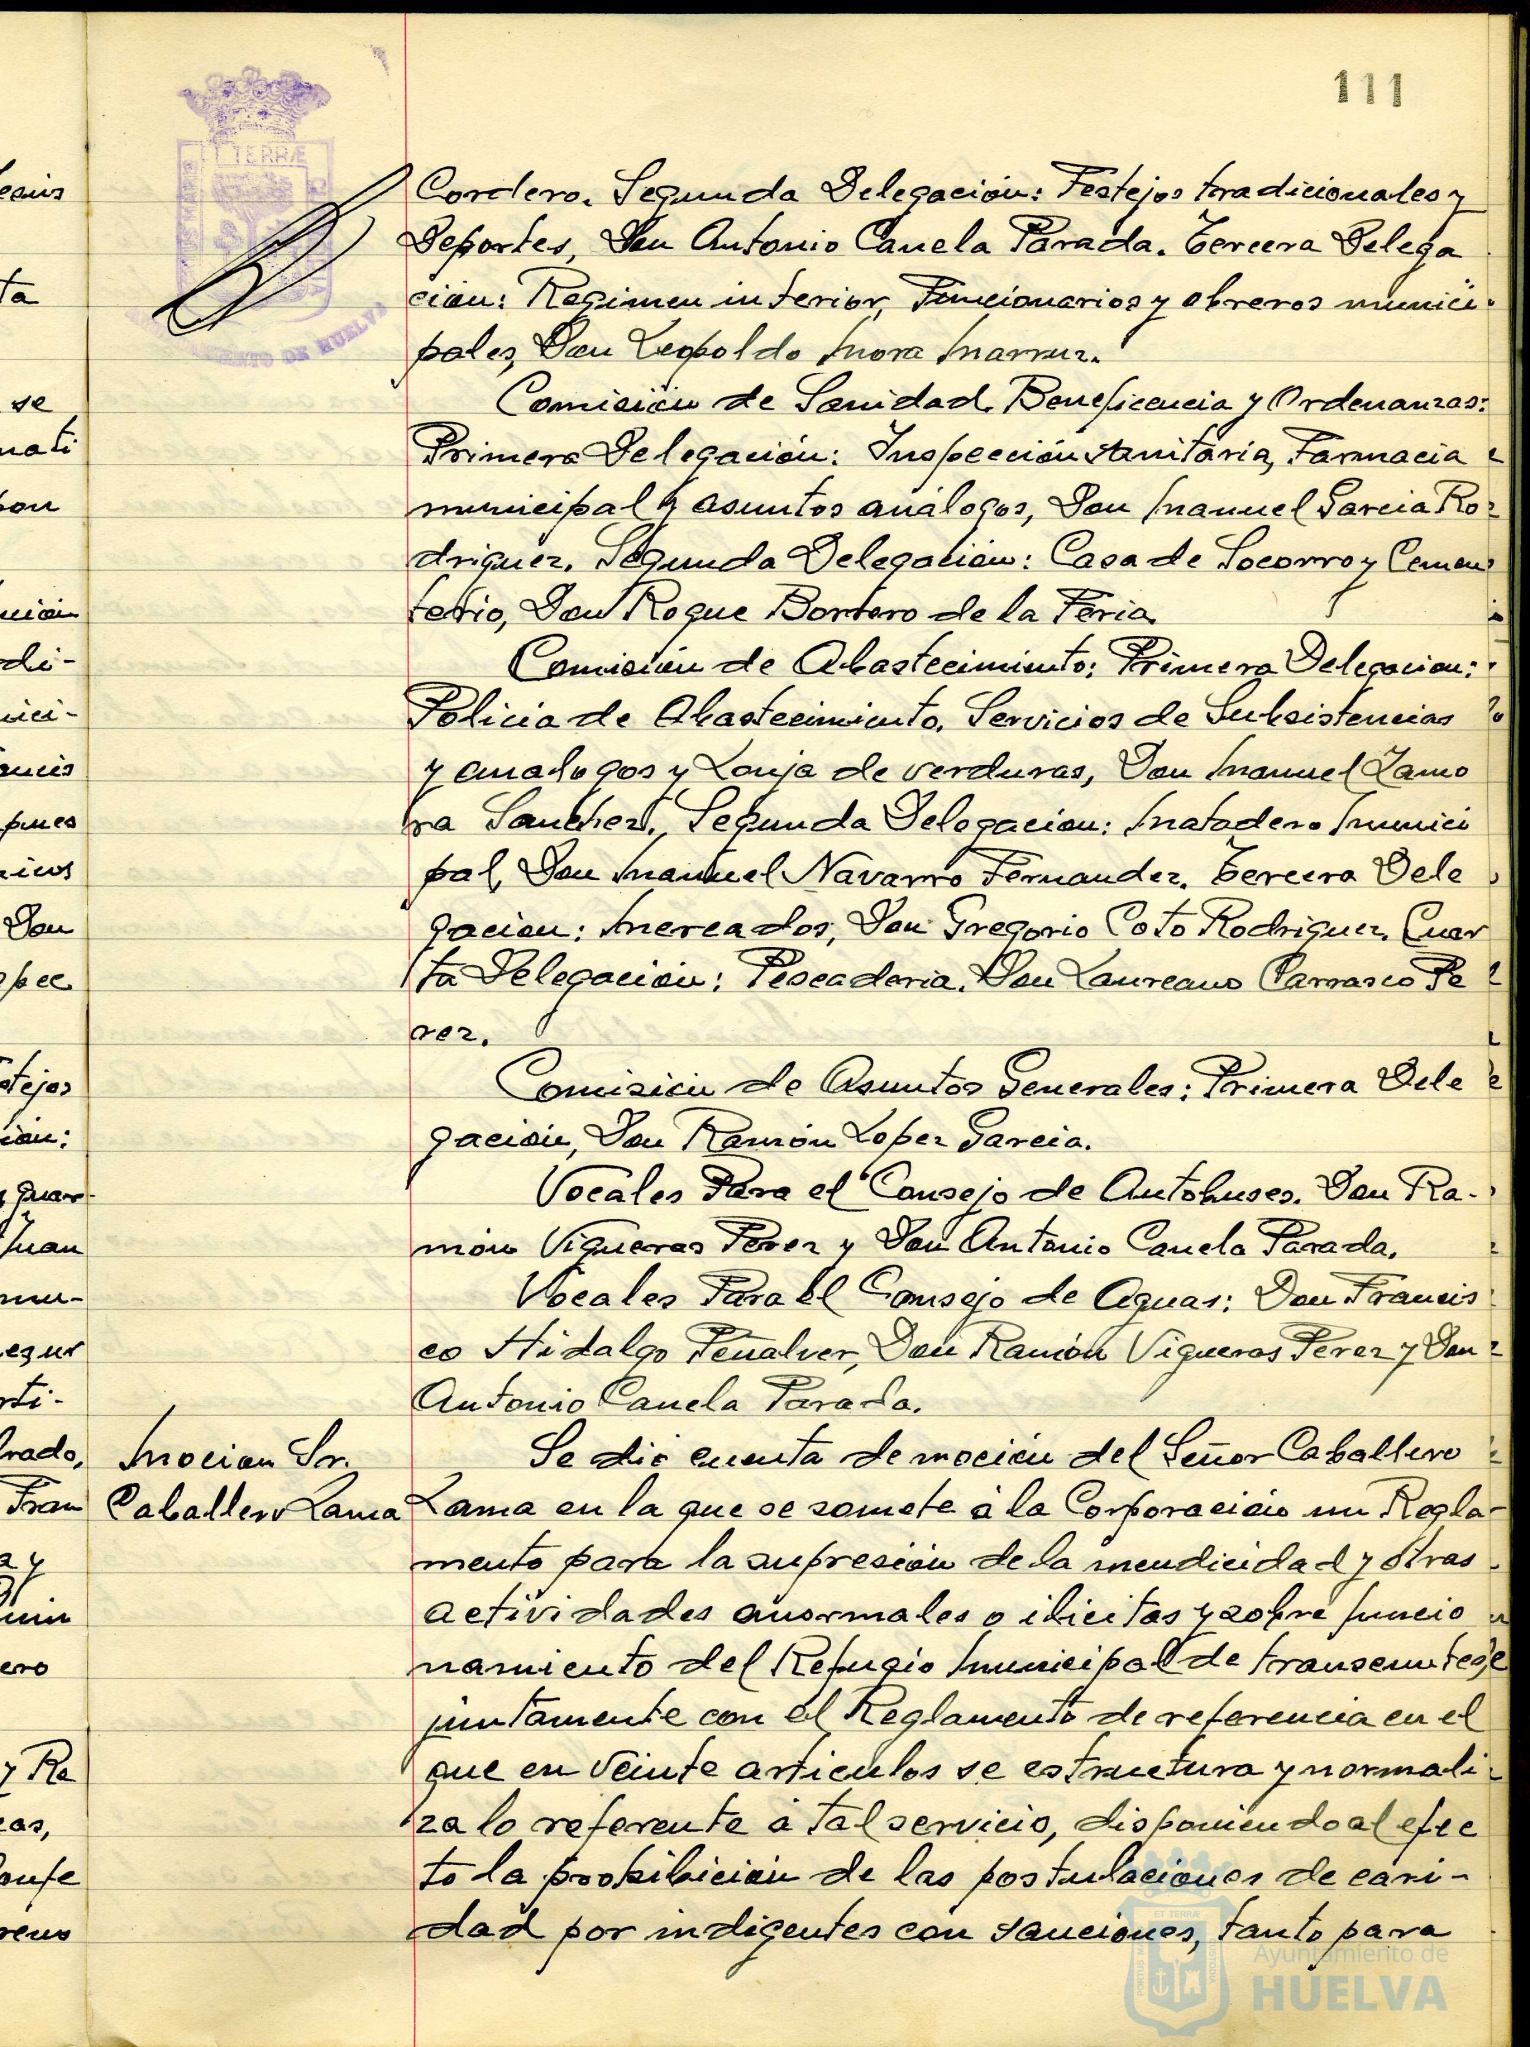 111
Cordero. Segunda Delegación: Festejos tradicionales y
Deportes, Don Antonio Canela Parada. Tercera Delega
ción: Regimen interior, Funcionarios y obreros munici-
pales, Don Leopoldo Mora
Comisión de Sanidad, Beneficencia y Ordenanzas:
Primera Delegación: Inspección sanitaria, Farmacia
municipal y asuntos análogos, Don Manuel Garcia Ro-
driguez. Segunda Delegación: Casa de Socorro y Cemen
terio, Don Roque Bortero de la Feria.
Comisión de Abastecimiento: Primera Delegacion:
Policia de Abastecimiento. Servicios de Subsistencias
y analogos y Lonja de verduras, Don Manuel Zamo
ra Sanchez. Segunda Delegacion: Matadero Munici
pal, Don Manuel Navarro Fernandez. Tercera Dele
gacion: Mercados, Don Gregorio Coto Rodriguez. Cuar
ta Delegación: Pescaderia. Don Laureano Carrasco Pe
rez.
Comisión de Asuntos Generales: Primera Dele
gación, Don Ramón Lopez Garcia.
Vocales Para el Consejo de Autobuses. Don Ra-
món Vigueras Perez y Don Antonio Canela Parada.
Vocales Para el Consejo de Aguas: Don Francis
co Hidalgo Peñalver, Don Ramón Vigueras Perez y Don
Antonio Canela Parada.
Mocion Sr.
Caballero Lama
Se dió cuenta de moción del Señor Caballero
Lama en la que se somete á la Corporación un Regla-
mento para la supresión de la mendicidad y otras
actividades anormales o ilicitas y sobre funcio
namiento del Refugio Municipal de transeuntes,
juntamente con el Reglamento de referencia en el
que en veinte articulos se estructura y normali-
za lo referente á tal servicio, disponiendo al efec
to la prohibición de las postulaciones de cari-
dad por indigentes con sanciones, tanto para
AYUNTAMIENTO DE HUELVA
Ayuntamiento de
HUELVA